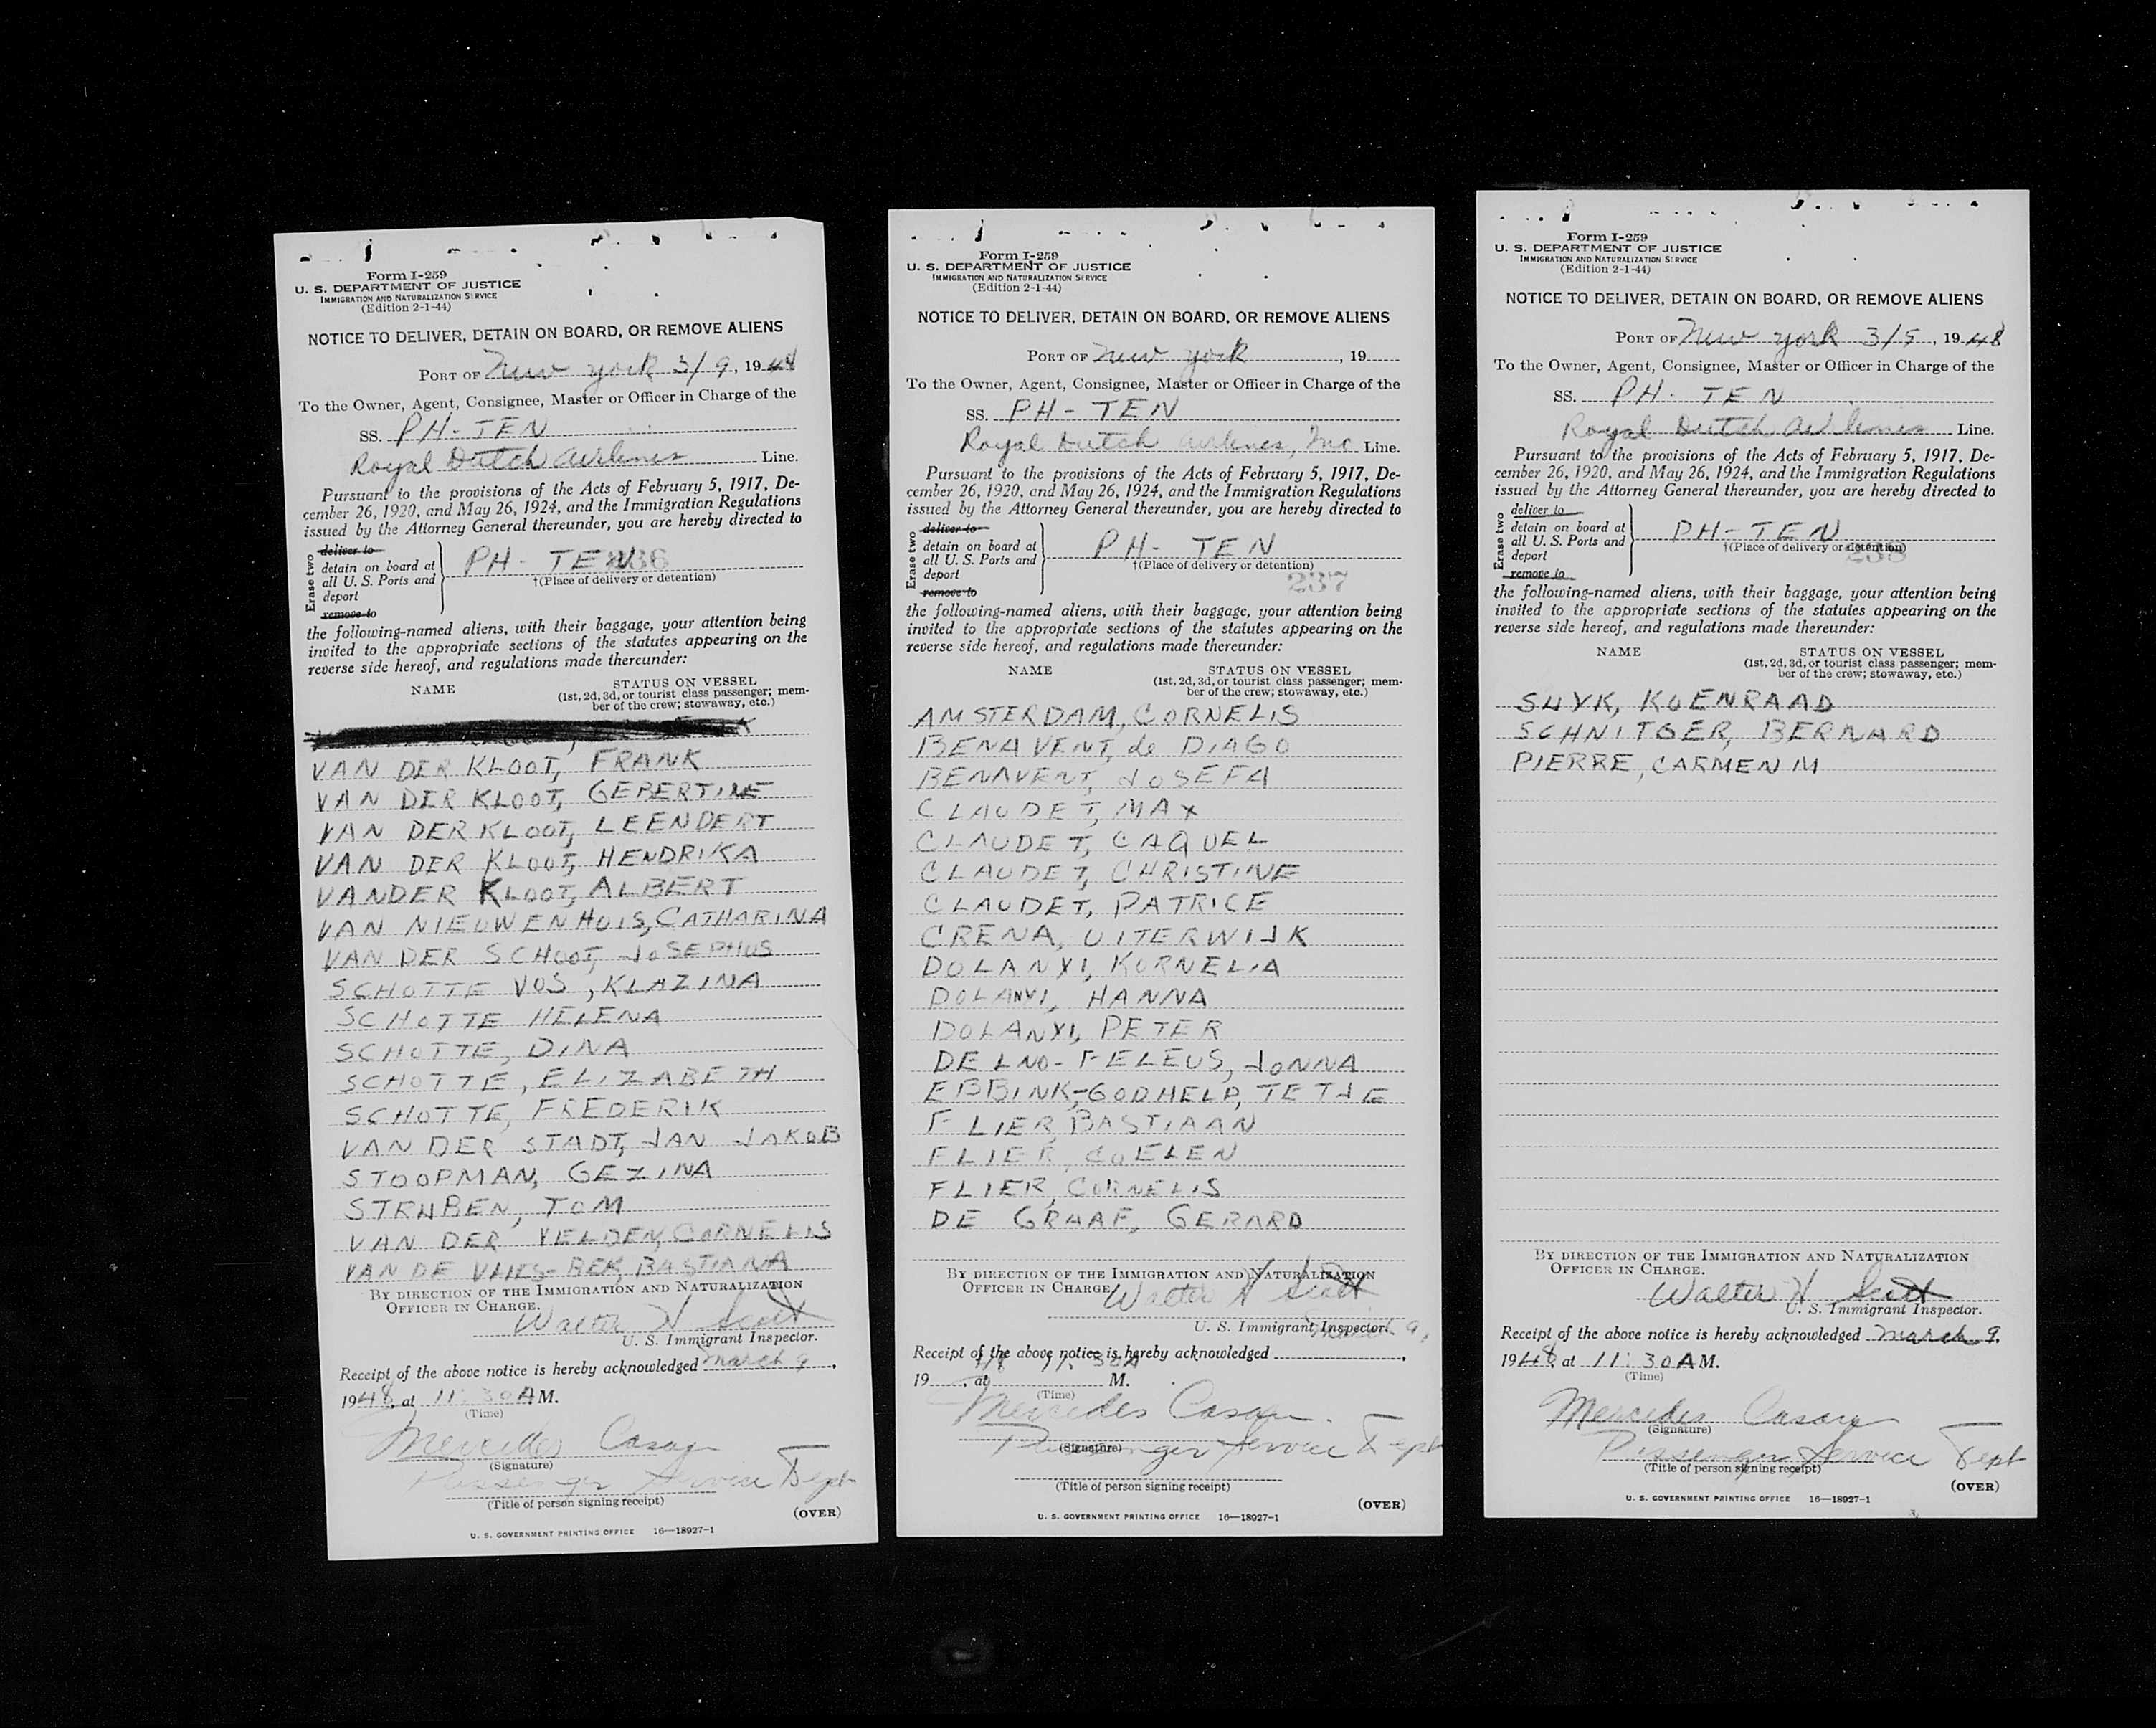 Form I-259
U. S. DEPARTMENT OF JUSTICE
IMMIGRATION AND NATURALIZATION SERVICE
(Edition 2-1-44)
NOTICE TO DELIVER, DETAIN ON BOARD, OR REMOVE ALIENS
PORT OF New York 3/9, 1948
To the Owner, Agent, Consignee, Master or Officer in Charge of the
SS. PH-TEN
Royal Dutch Airlines Line.
Pursuant to the provisions of the Acts of February 5, 1917, De-
cember 26, 1920, and May 26, 1924, and the Immigration Regulations
issued by the Attorney General thereunder, you are hereby directed to
Erase two
deliver to
detain on board at
all U. S. Ports and
deport
remove to
PH-TEN
236
†(Place of delivery or detention)
the following-named aliens, with their baggage, your attention being
invited to the appropriate sections of the statutes appearing on the
reverse side hereof, and regulations made thereunder:
NAME
STATUS ON VESSEL
(1st, 2d, 3d, or tourist class passenger; mem-
ber of the crew; stowaway, etc.)
VAN DER KLOOT, FRANK
VAN DER KLOOT, GEBERTINE
VAN DER KLOOT, LEENDERT
VAN DER KLOOT, HENDRIKA
VANDER KLOOT, ALBERT
VAN NIEUWENHOIS, CATHARINA
VAN DER SCHOOT, JOSEPHUS
SCHOTTE VOS, KLAZINA
SCHOTTE HELENA
SCHOTTE, DINA
SCHOTTE, ELIZABETH
SCHOTTE, FREDERIK
VAN DER STADT, JAN JAKOB
STOOPMAN, GEZINA
STRUBEN, TOM
VAN DER VELDEN, CORNELIS
VAN DE VLIES-BEK, BASTIANA
BY DIRECTION OF THE IMMIGRATION AND NATURALIZATION
OFFICER IN CHARGE.
Walter H Scott
U. S. Immigrant Inspector.
Receipt of the above notice is hereby acknowledged March 9,
1948, at 11:30 A M.
(Time)
Mercedes
(Signature)
Passenger Service Dept
(Title of person signing receipt)
(OVER)
U. S. GOVERNMENT PRINTING OFFICE 16—18927-1
Form I-259
U. S. DEPARTMENT OF JUSTICE
IMMIGRATION AND NATURALIZATION SERVICE
(Edition 2-1-44)
NOTICE TO DELIVER, DETAIN ON BOARD, OR REMOVE ALIENS
PORT OF New York, 19
To the Owner, Agent, Consignee, Master or Officer in Charge of the
SS. PH-TEN
Royal Dutch Airlines, Inc Line.
Pursuant to the provisions of the Acts of February 5, 1917, De-
cember 26, 1920, and May 26, 1924, and the Immigration Regulations
issued by the Attorney General thereunder, you are hereby directed to
Erase two
deliver to
detain on board at
all U. S. Ports and
deport
remove to
PH-TEN
†(Place of delivery or detention)
237
the following-named aliens, with their baggage, your attention being
invited to the appropriate sections of the statutes appearing on the
reverse side hereof, and regulations made thereunder:
NAME
STATUS ON VESSEL
(1st, 2d, 3d, or tourist class passenger; mem-
ber of the crew; stowaway, etc.)
AMSTERDAM, CORNELIS
BENAVENT, de DIAGO
BENAVENT, JOSEFA
CLAUDET, MAX
CLAUDET, CAQUEL
CLAUDET, CHRISTINE
CLAUDET, PATRICE
CRENA, UITERWIJK
DOLANYI, KORNELIA
DOLANYI, HANNA
DOLANYI, PETER
DELNO-FELEUS, JONNA
EBBINK-GODHELP, TETJE
FLIER, BASTIAAN
FLIER, COELEN
FLIER, CORNELIS
DE GRAAF, GERARD
BY DIRECTION OF THE IMMIGRATION AND NATURALIZATION
OFFICER IN CHARGE.
Walter H Scott
U. S. Immigrant Inspector.
March 9,
Receipt of the above notice is hereby acknowledged
11:30A
19 , at M.
(Time)
Mercedes
(Signature)
Passenger Service Dept
(Title of person signing receipt)
(OVER)
U. S. GOVERNMENT PRINTING OFFICE 16—18927-1
Form I-259
U. S. DEPARTMENT OF JUSTICE
IMMIGRATION AND NATURALIZATION SERVICE
(Edition 2-1-44)
NOTICE TO DELIVER, DETAIN ON BOARD, OR REMOVE ALIENS
PORT OF New York 3/9, 1948
To the Owner, Agent, Consignee, Master or Officer in Charge of the
SS. PH-TEN
Royal Dutch Airlines Line.
Pursuant to the provisions of the Acts of February 5, 1917, De-
cember 26, 1920, and May 26, 1924, and the Immigration Regulations
issued by the Attorney General thereunder, you are hereby directed to
Erase two
deliver to
detain on board at
all U. S. Ports and
deport
remove to
PH-TEN
†(Place of delivery or detention)
238
the following-named aliens, with their baggage, your attention being
invited to the appropriate sections of the statutes appearing on the
reverse side hereof, and regulations made thereunder:
NAME
STATUS ON VESSEL
(1st, 2d, 3d, or tourist class passenger; mem-
ber of the crew; stowaway, etc.)
SUYK, KOENRAAD
SCHNITGER, BERNARD
PIERRE, CARMEN M
BY DIRECTION OF THE IMMIGRATION AND NATURALIZATION
OFFICER IN CHARGE.
Walter H Scott
U. S. Immigrant Inspector.
Receipt of the above notice is hereby acknowledged March 9,
1948 at 11:30 A M.
(Time)
Mercedes
(Signature)
Passenger Service Dept
(Title of person signing receipt)
(OVER)
U. S. GOVERNMENT PRINTING OFFICE 16—18927-1